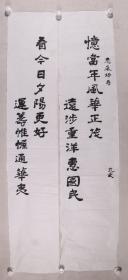 惠泉幼寿
憶當年風華正茂
遠涉重洋惠國民
看今日夕陽更好
運籌帷幄通華夷